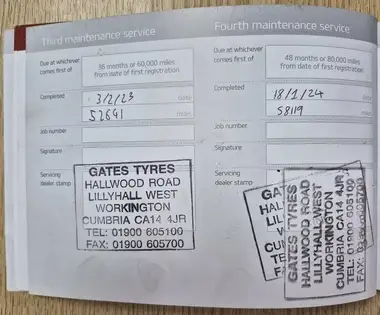 Third maintenance service
Due at whichever comes first of
36 months or 60,000 miles
from date of first registration
Completed
3/2/23
date
52641
miles
Job number
Signature
Servicing
dealer stamp
GATES TYRES
HALLWOOD ROAD
LILLYHALL WEST
WORKINGTON
CUMBRIA CA14 4JR
TEL: 01900 605100
FAX: 01900 605700
Fourth maintenance service
Due at whichever
comes first of
48 months or 80,000 miles
from date of first registration
Completed
18/1/24
date
58119
miles
Job number
Signature
Servicing
dealer stamp
GA
HAL
LIL
CU
TE
FA
GATES TYRES
HALLWOOD ROAD
LILLYHALL WEST
WORKINGTON
CUMBRIA CA14 4JR
TEL: 01900 605100
FAX: 01900 605700